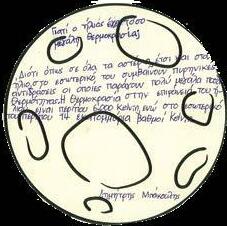 Γιατί ο ήλιος έχει τόσο
μεγάλη θερμοκρασία;
Διότι όπως σε όλα τα αστέρια, έτσι και στον
ήλιο, στο εσωτερικό του συμβαίνουν πυρηνικές
αντιδράσεις οι οποίες παράγουν πολύ μεγάλα ποσά
θερμότητας. Η θερμοκρασία στην επιφάνεια του ή-
λιου είναι περίπου 6.000 Kelvin, ενώ στο εσωτερικό
του περίπου 14 εκατομμύρια βαθμοί Kelvin.
Δημήτρης